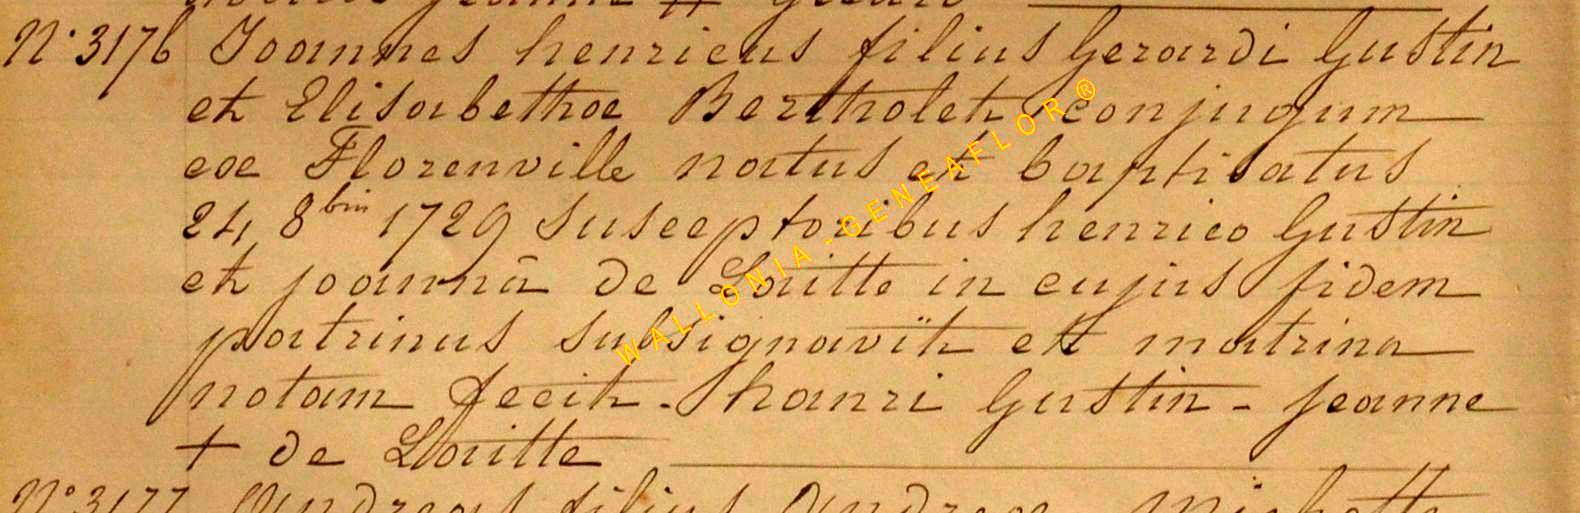 N° 3176 Joannes henricus filius Gerardi Gustin
et Elisabethae Bertholet conjugum
ex Florenville natus et baptisatus
24 8bris 1729 susceptoribus henrico Gustin
et joannā de Louitte in cujus fidem
patrinus subsignavit et matrina
notam fecit - hanri Gustin - jeanne
+ de Louitte
N° 3177 Andreas filius Andreae Michette
WALLONIA-GENEAFLOR®